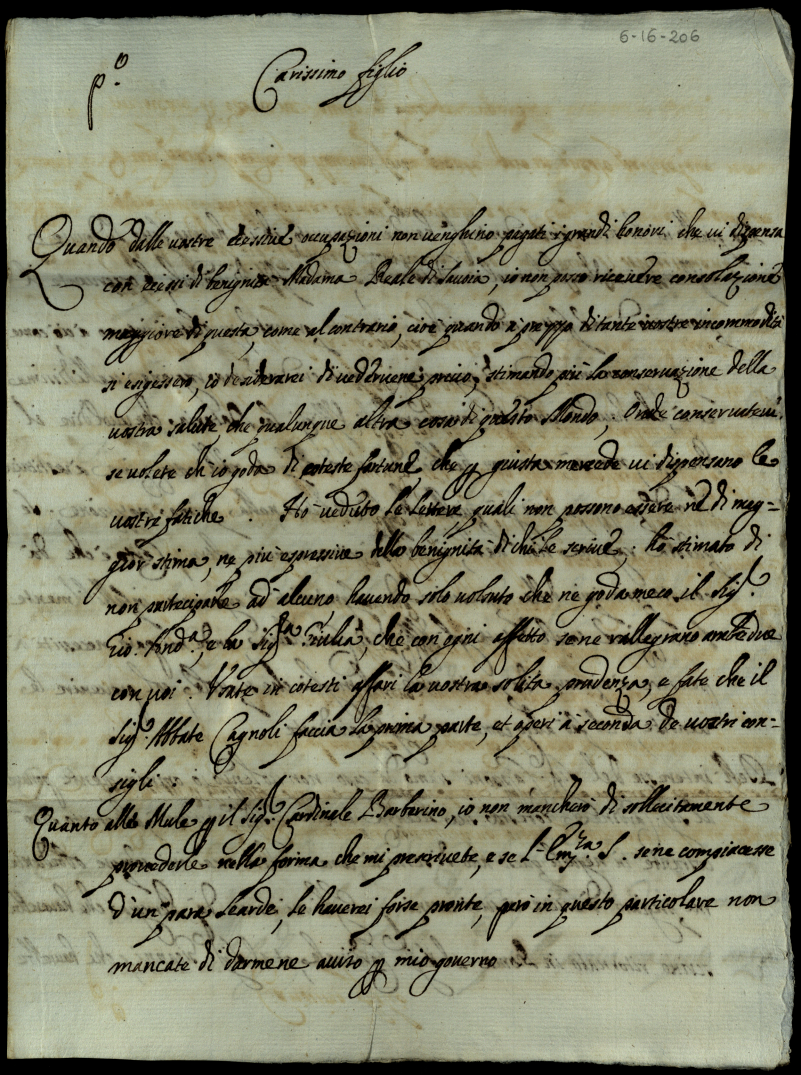 6-16-206
p.º Carissimo figlio
Quando dalle vostre eccessive occupazioni non venghino pagati i grandi honori che vi dispensa
con eccessi di benignità Madama Reale di Savoia, io non posso ricevere consolazione
maggiore di questa, come al contrario, cioè quando a prezzo di tante vostre incommodità
si esigessero, io desiderarei di vedervene privo, stimando più la conservazione della
vostra salute, che qualunque altra cosa di questo Mondo, Onde conservatevi
se volete ch'io goda di coteste fortune, che p giusta mercede vi dispensano le
vostre fatiche. Ho veduto le lettere, quali non possono essere ne di mag=
gior stima, ne più espressive della benignità di chi le scrive, hò stimato di
non partecipare ad alcuno havendo solo voluto che ne goda meco il Sig.r
Gio: Andª, e la Sigª Giulia, che con ogni affetto se ne rallegrano ambedue
con voi. Usate in cotesti affari la vostra solita prudenza, e fate che il
Sig.r Abbate Cagnoli faccia la prima parte, et operi à seconda de vostri con=
sigli.
Quanto alle Mule p il Sig.r Cardinale Barberino, io non mancherò di sollecitamente
provederle nella forma che mi prescrivete, e se L'Emzª S. se ne compiacesse
d'un para Leardi, le haverei forse pronte, però in questo particolare non
mancate di darmene aviso p mio governo